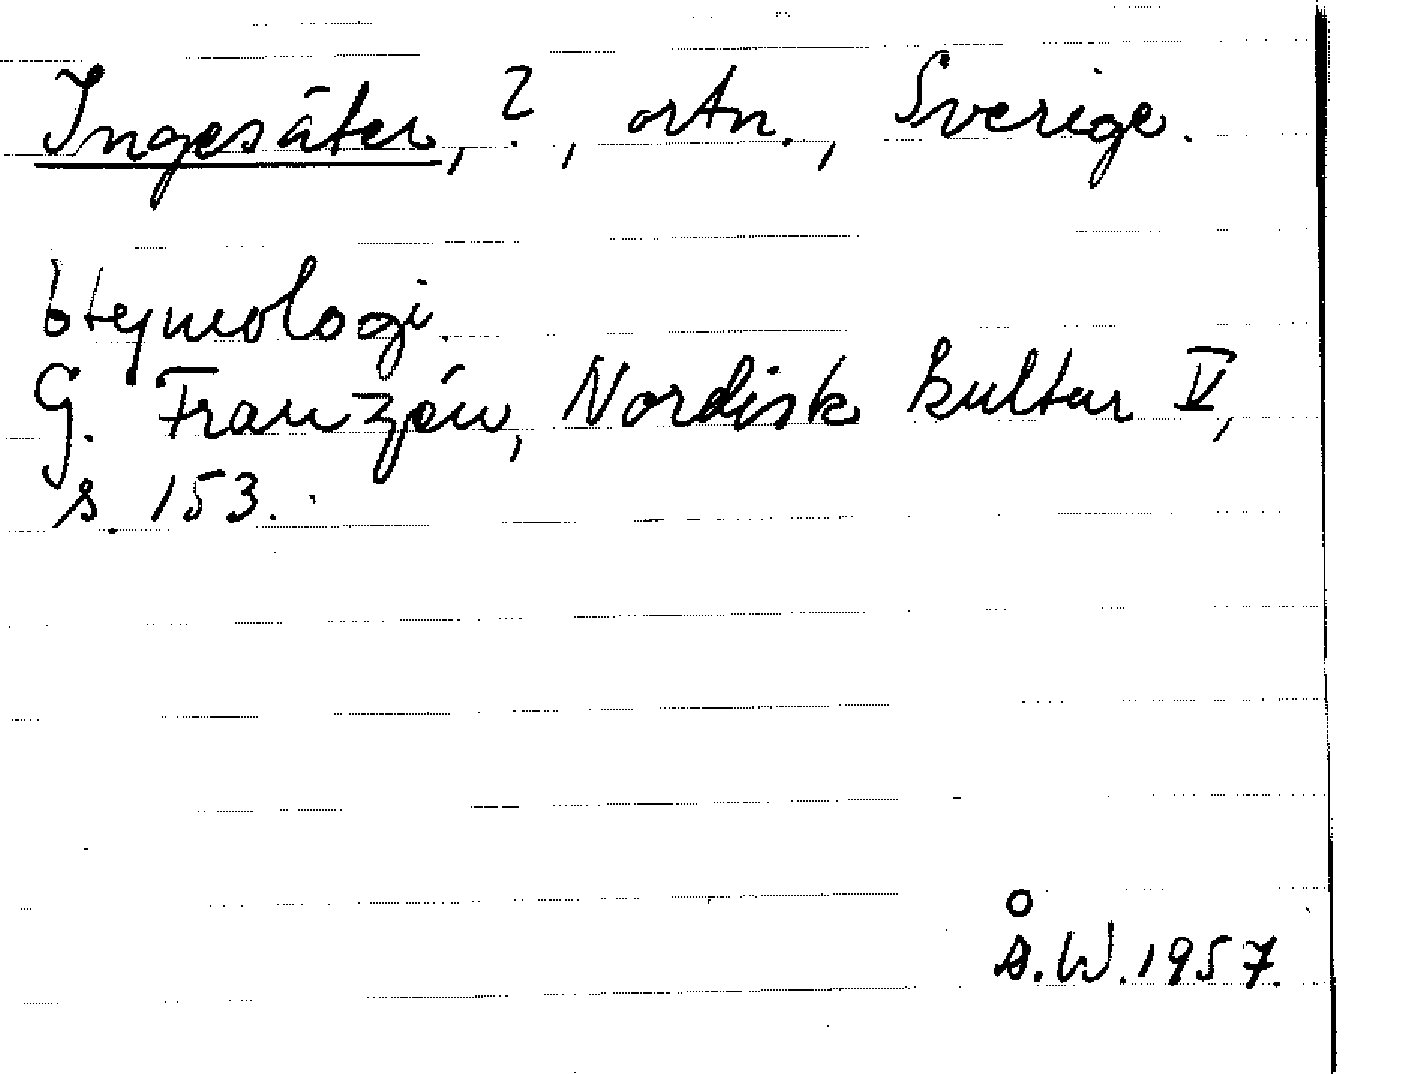 Ingesäter, ?, ortn., Sverige.
Etymologi
G. Franzén, Nordisk kultur V,
s. 153.
Å.W. 1957.